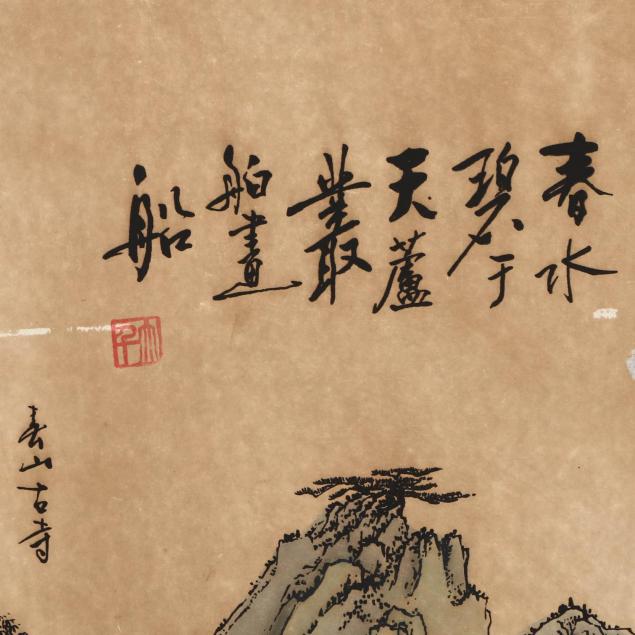 春水
碧于
天蘆
叢
舶畫
船
春山古寺